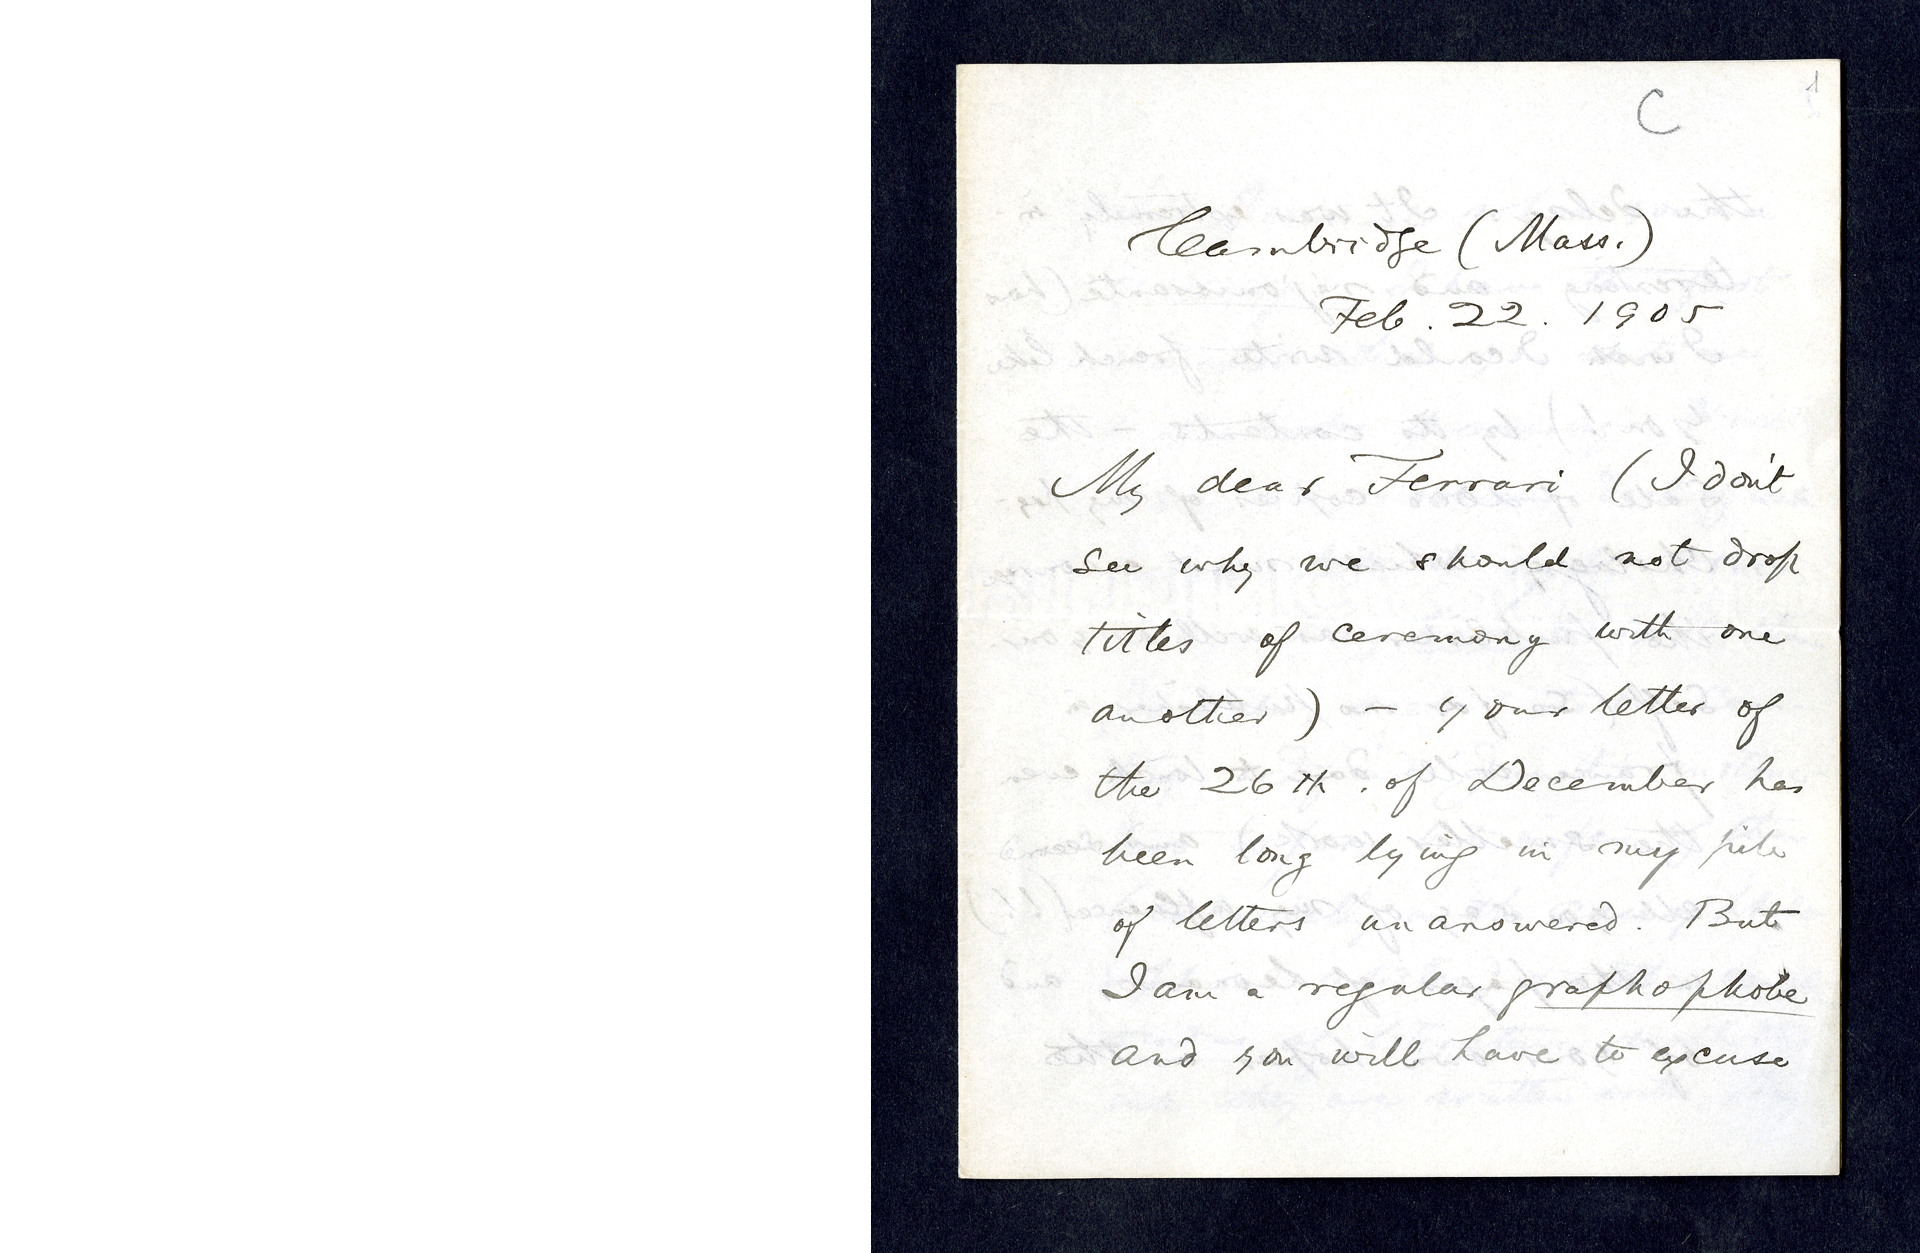 C 1
Cambridge (Mass.)
Feb. 22. 1905
My dear Ferrari (I don't
see why we should not drop
titles of ceremony with one
another) — your letter of
the 26th. of December has
been long lying in my pile
of letters unanswered. But
I am a regular graphophobe
and you will have to excuse